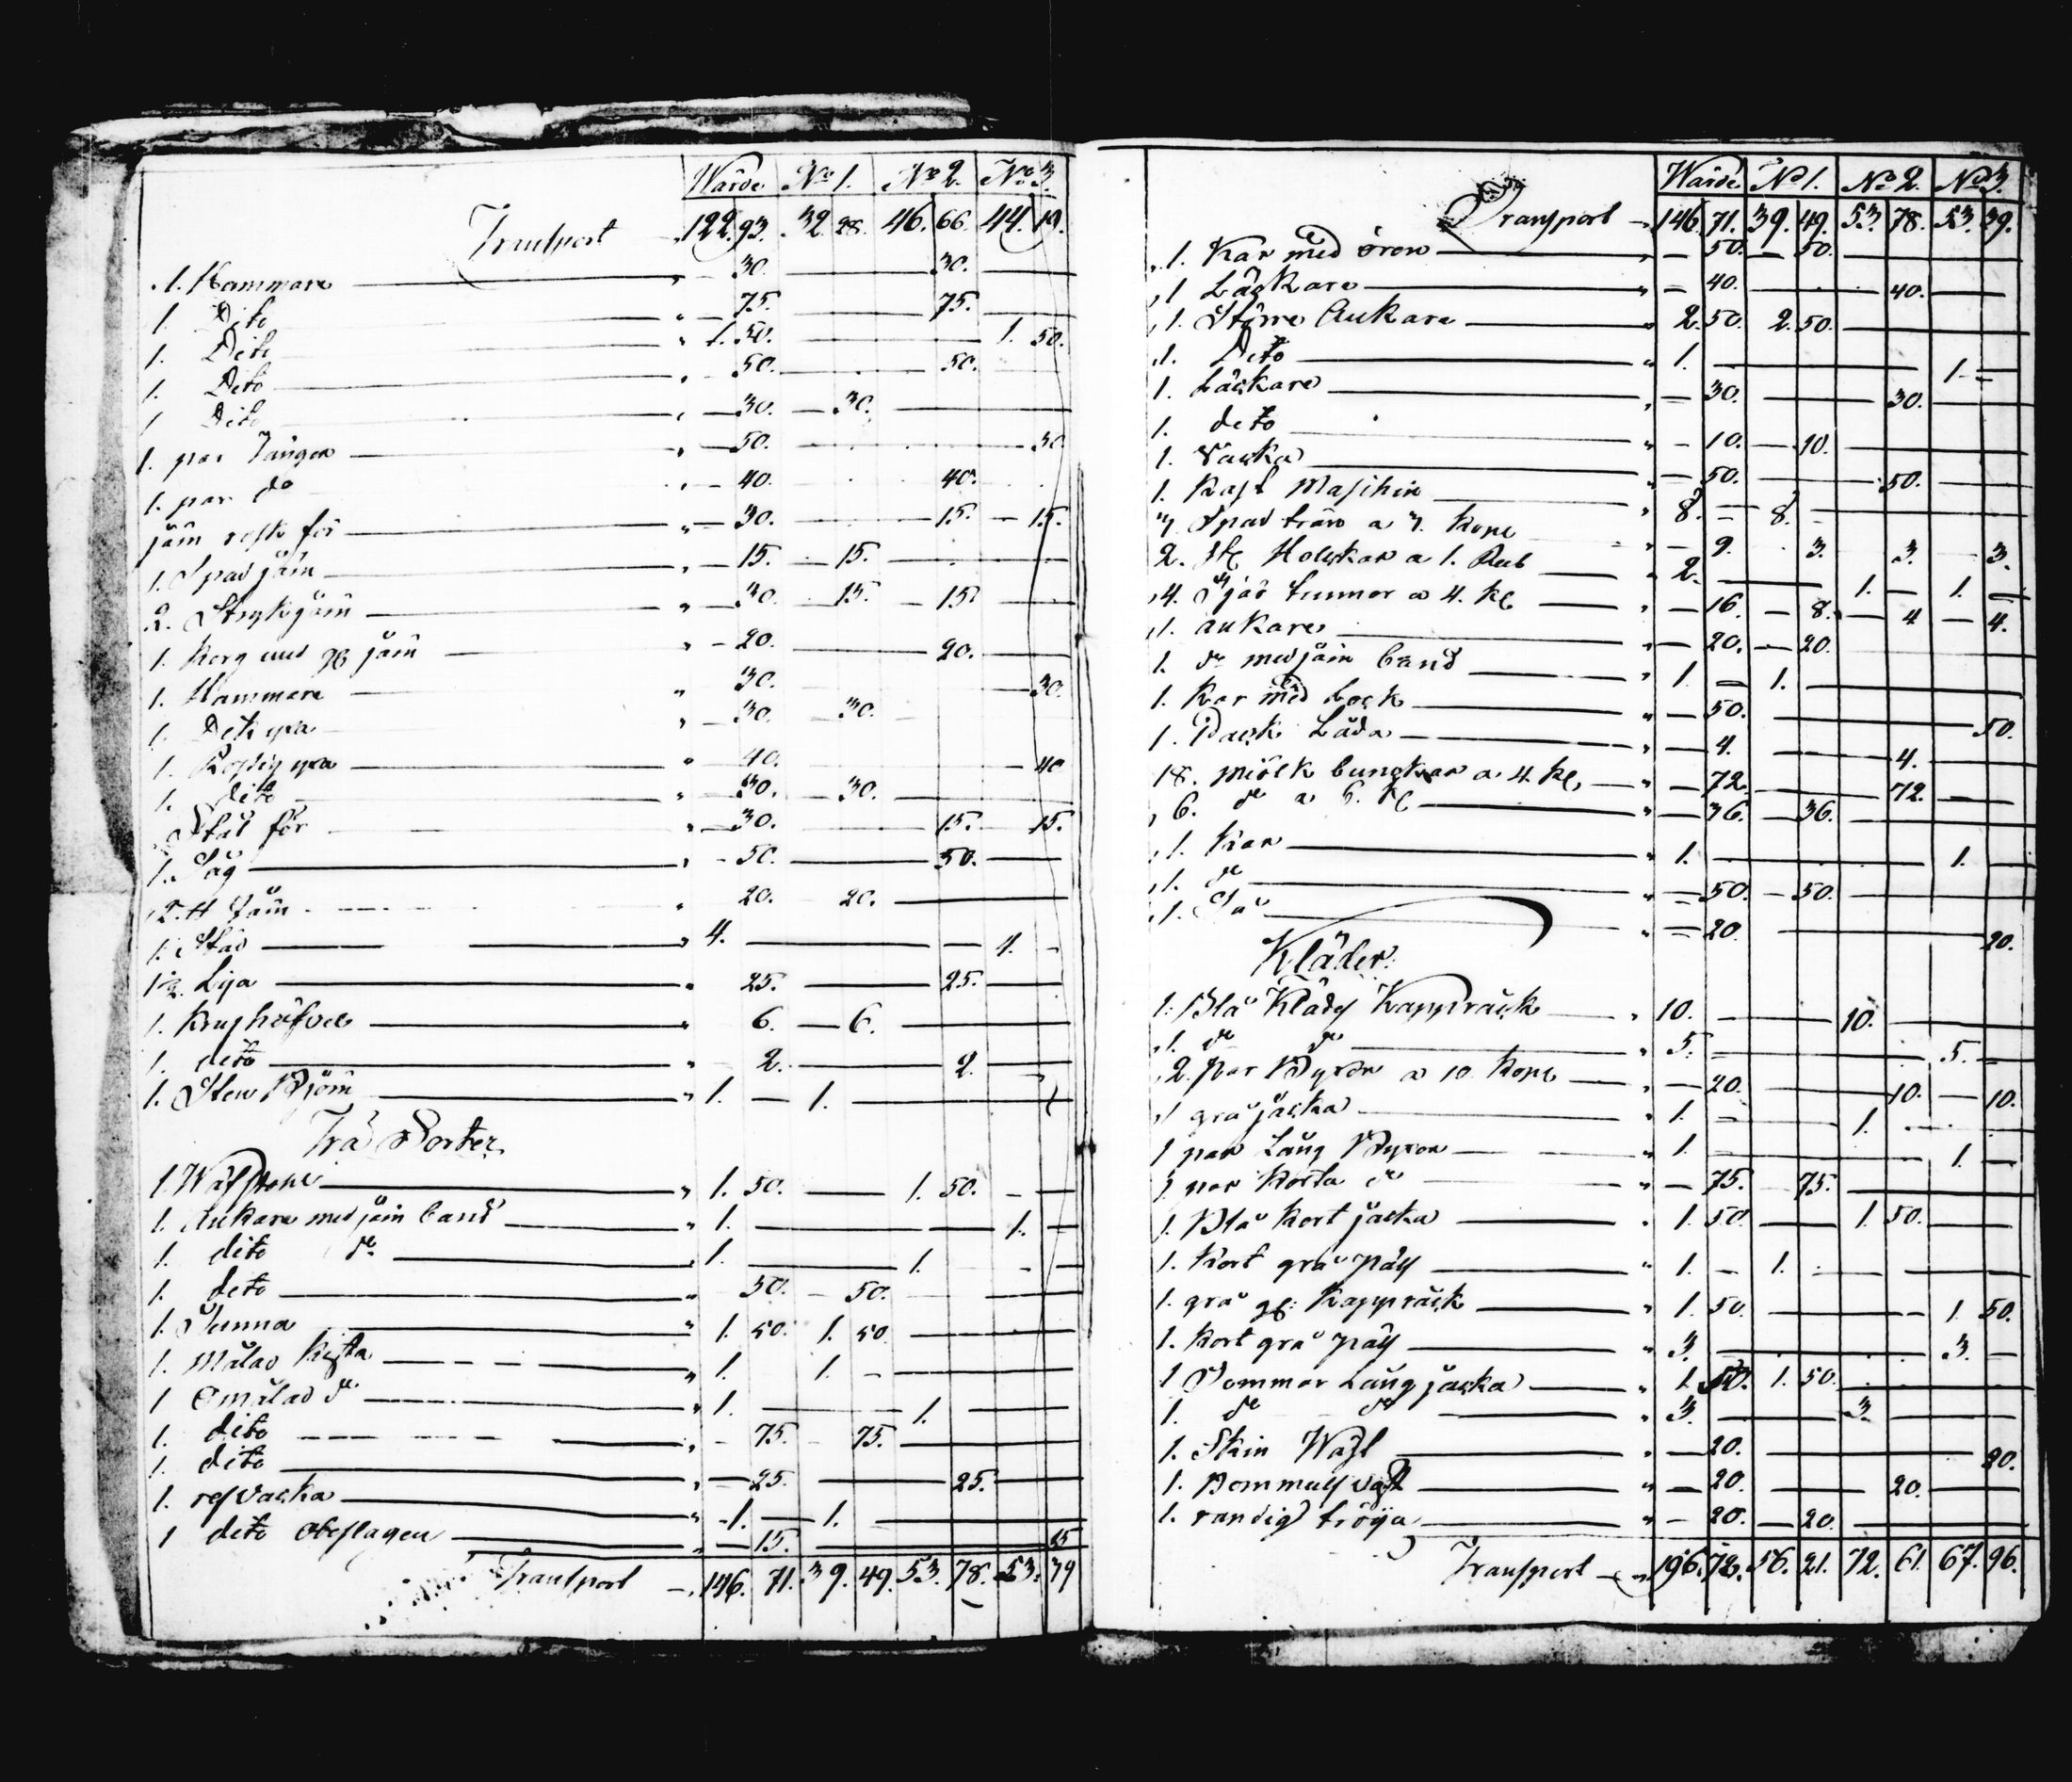 Wärde No 1. No 2. No 3.
Transport 122. 93. 32. 28. 46. 66. 44. 19.
1. Hammare 30. 30.
1. Dito 75. 75.
1. Dito 1. 50. 1. 50.
1. Dito 50. 50.
1 Dito 30. 30.
1. par Tänger 50. 50
1. par do 40. 40.
järn för 30. 15. 15.
1. Spad järn 15. 15.
2. Strykjärn 30. 15. 15
1. Korg med gl järn 20. 20.
1. Hammare 30. 30.
1. Dito 30. 30.
1. 40. 40
1. dito 30. 30.
Stål för 30. 15. 15.
1. Såg 50. 50.
järn 20. 20.
1. Städ 4. 4.
1. Lija 25. 25.
1. 6. 6.
1. dito 2. 2.
1. Sten 1. 1.
Trä Sorter
1. 1. 50. 1. 50.
1. Ankare med järn band 1. 1.
1. dito do 1. 1.
1. deto 50. 50.
1. Tunna 1. 50. 1. 50
1. Målad Kista 1. 1.
1 Omålad do 1. 1.
1. dito 75. 75.
1. dito 25. 25.
1. resvacka 1. 1.
1 deto obeslagen 15. 15
Transport 146. 71. 39. 49. 53. 78. 53. 39
Wärde No 1. No 2. No 3.
Transport 146. 71. 39. 49. 53. 78. 53. 39.
1. Kar med öron 50. 50.
1 Läckare 40. 40.
1. Större Ankare 2. 50. 2. 50.
1. Deto 1. 1.
1. Läckare 30. 30.
1. deto 10. 10.
1. Väcka 50. 50.
1. Kast Maschin 8. 8.
a 3. Kope 9. 3. 3. 3.
2. st a 1. Rub 2. 1. 1.
4. tunnor a 4. K 16. 8. 4 4.
1. ankare 20. 20.
1. do med järn band 1. 1.
1. Kar med lock 50. 50.
1. Back Låda 4. 4.
18. miölk bunckar a 4. K 72. 72.
6. do a 6. K 36. 36.
1. Kar 1. 1.
1. do 50. 50.
1. Så 20. 20.
Kläder
1. Blå Klädes Kappråck 10. 10.
1. do do 5. 5.
2. par Byxor a 10 Kope 20. 10. 10.
1 grå jacka 1. 1.
1 par Lång Byxor 1. 1.
1 par Korta do 75. 75.
1. Blå Kort jacka 1. 50 1. 50.
1. Kort grå päls 1. 1.
1. grå gl: Kappråck 1. 50 1. 50.
1. Kort grå päls 3. 3.
1 Sommar Lång jacka 1. 50. 1. 50.
1. do do 3. 3.
1. Skin Wäst 20. 20.
1. Bommulls väst 20. 20.
1. randig tröija 20. 20.
Transport 196. 78. 56. 21. 72. 61. 67. 96.